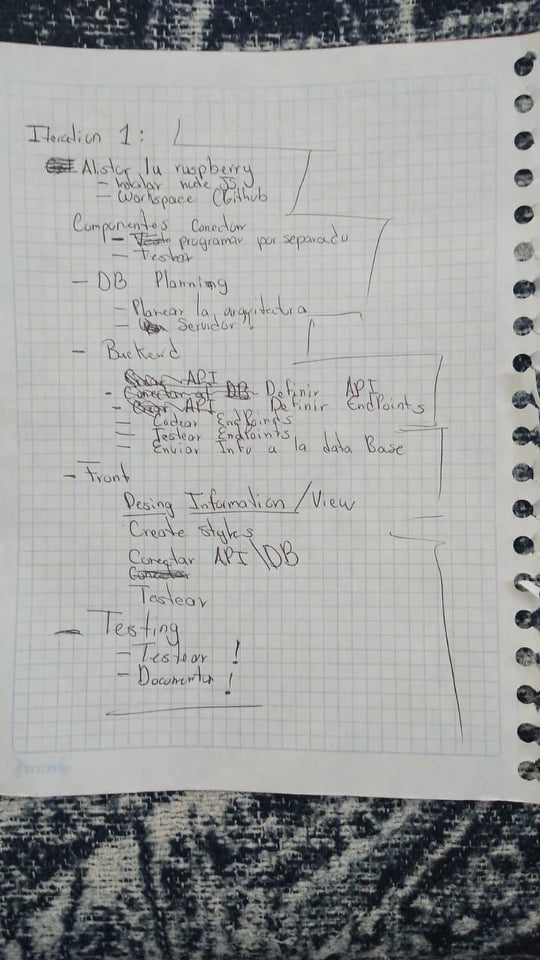 Iteration 1:
Alistar la ruspberry
- Instalar node JS
- Workspace (Github
Componentes Conectar
- programar por separado
- Testear
- DB Planning
- Planear la arquitectura
- Servidor!
- Backend
API
- Conectar al DB Definir API
- Crear API Definir EndPoints
- Codear Endpoints
- Testear Endpoints
- Enviar Info a la data Base
- Front
Desing Information / View
Create styles
Conectar API \ DB
Conectar
Testear
- Testing
- Testear !
- Documentar !